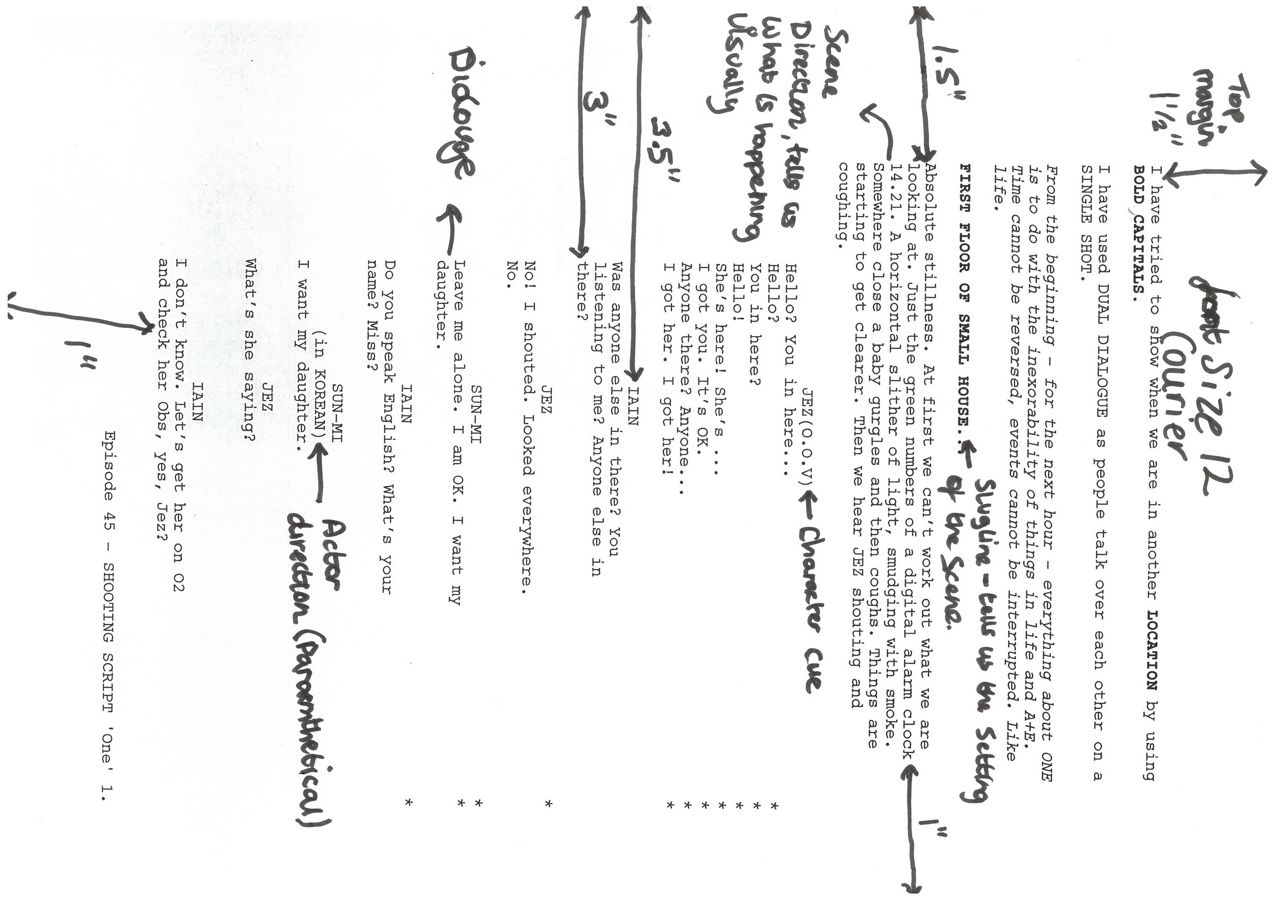 Top
margin
1 1/2"
font Size 12
Courier
I have tried to show when we are in another LOCATION by using
BOLD CAPITALS.
I have used DUAL DIALOGUE as people talk over each other on a
SINGLE SHOT.
From the beginning - for the next hour - everything about ONE
is to do with the inexorability of things in life and A+E.
Time cannot be reversed, events cannot be interrupted. Like
life.
1.5"
FIRST FLOOR OF SMALL HOUSE..
Slugline - tells us the Setting
of the Scene.
Absolute stillness. At first we can't work out what we are
looking at. Just the green numbers of a digital alarm clock
14.21. A horizontal slither of light, smudging with smoke.
Somewhere close a baby gurgles and then coughs. Things are
starting to get clearer. Then we hear JEZ shouting and
coughing.
1"
Scene
Direction, tells us
what is happening
visually
JEZ(O.O.V)
Character cue
Hello? You in here... *
Hello? *
You in here? *
Hello! *
She's here! She's ... *
I got you. It's OK. *
Anyone there? Anyone... *
I got her. I got her! *
3.5"
3"
IAIN
Was anyone else in there? You
listening to me? Anyone else in
there?
JEZ *
No! I shouted. Looked everywhere.
No.
Dialouge
SUN-MI *
Leave me alone. I am OK. I want my *
daughter.
IAIN *
Do you speak English? What's your
name? Miss?
SUN-MI
(in KOREAN)
I want my daughter.
Actor
direction (Paranthetical)
JEZ
What's she saying?
IAIN
I don't know. Let's get her on O2
and check her Obs, yes, Jez?
1"
Episode 45 - SHOOTING SCRIPT 'One' 1.